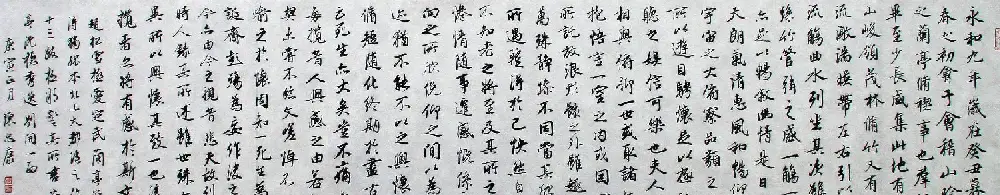 永和九年歲在癸丑暮
春之初會于會稽山陰
之蘭亭脩稧事也羣賢
畢至少長咸集此地有崇
山峻嶺茂林脩竹又有清
流激湍暎帶左右引以為
流觴曲水列坐其次雖無
絲竹管弦之盛一觴一詠
亦足以暢敘幽情是日也
天朗氣清惠風和暢仰觀
宇宙之大俯察品類之盛
所以遊目騁懷足以極視
聽之娛信可樂也夫人之
相與俯仰一世或取諸懷
抱悟言一室之內或因寄
所託放浪形骸之外雖趣舍
萬殊靜躁不同當其欣於
所遇暫得於己快然自足
不知老之將至及其所之既
惓情隨事遷感慨係之矣
向之所欣俛仰之間以為陳
迹猶不能不以之興懷況
脩短隨化終期於盡古人云
死生亦大矣豈不痛哉
每攬昔人興感之由若合一
契未嘗不臨文嗟悼不能
喻之於懷固知一死生為虛
誕齊彭殤為妄作後之視
今亦由今之視昔悲夫故列敘
時人錄其所述雖世殊事
異所以興懷其致一也後之
攬者亦將有感於斯文
庚寅正月陳忠康